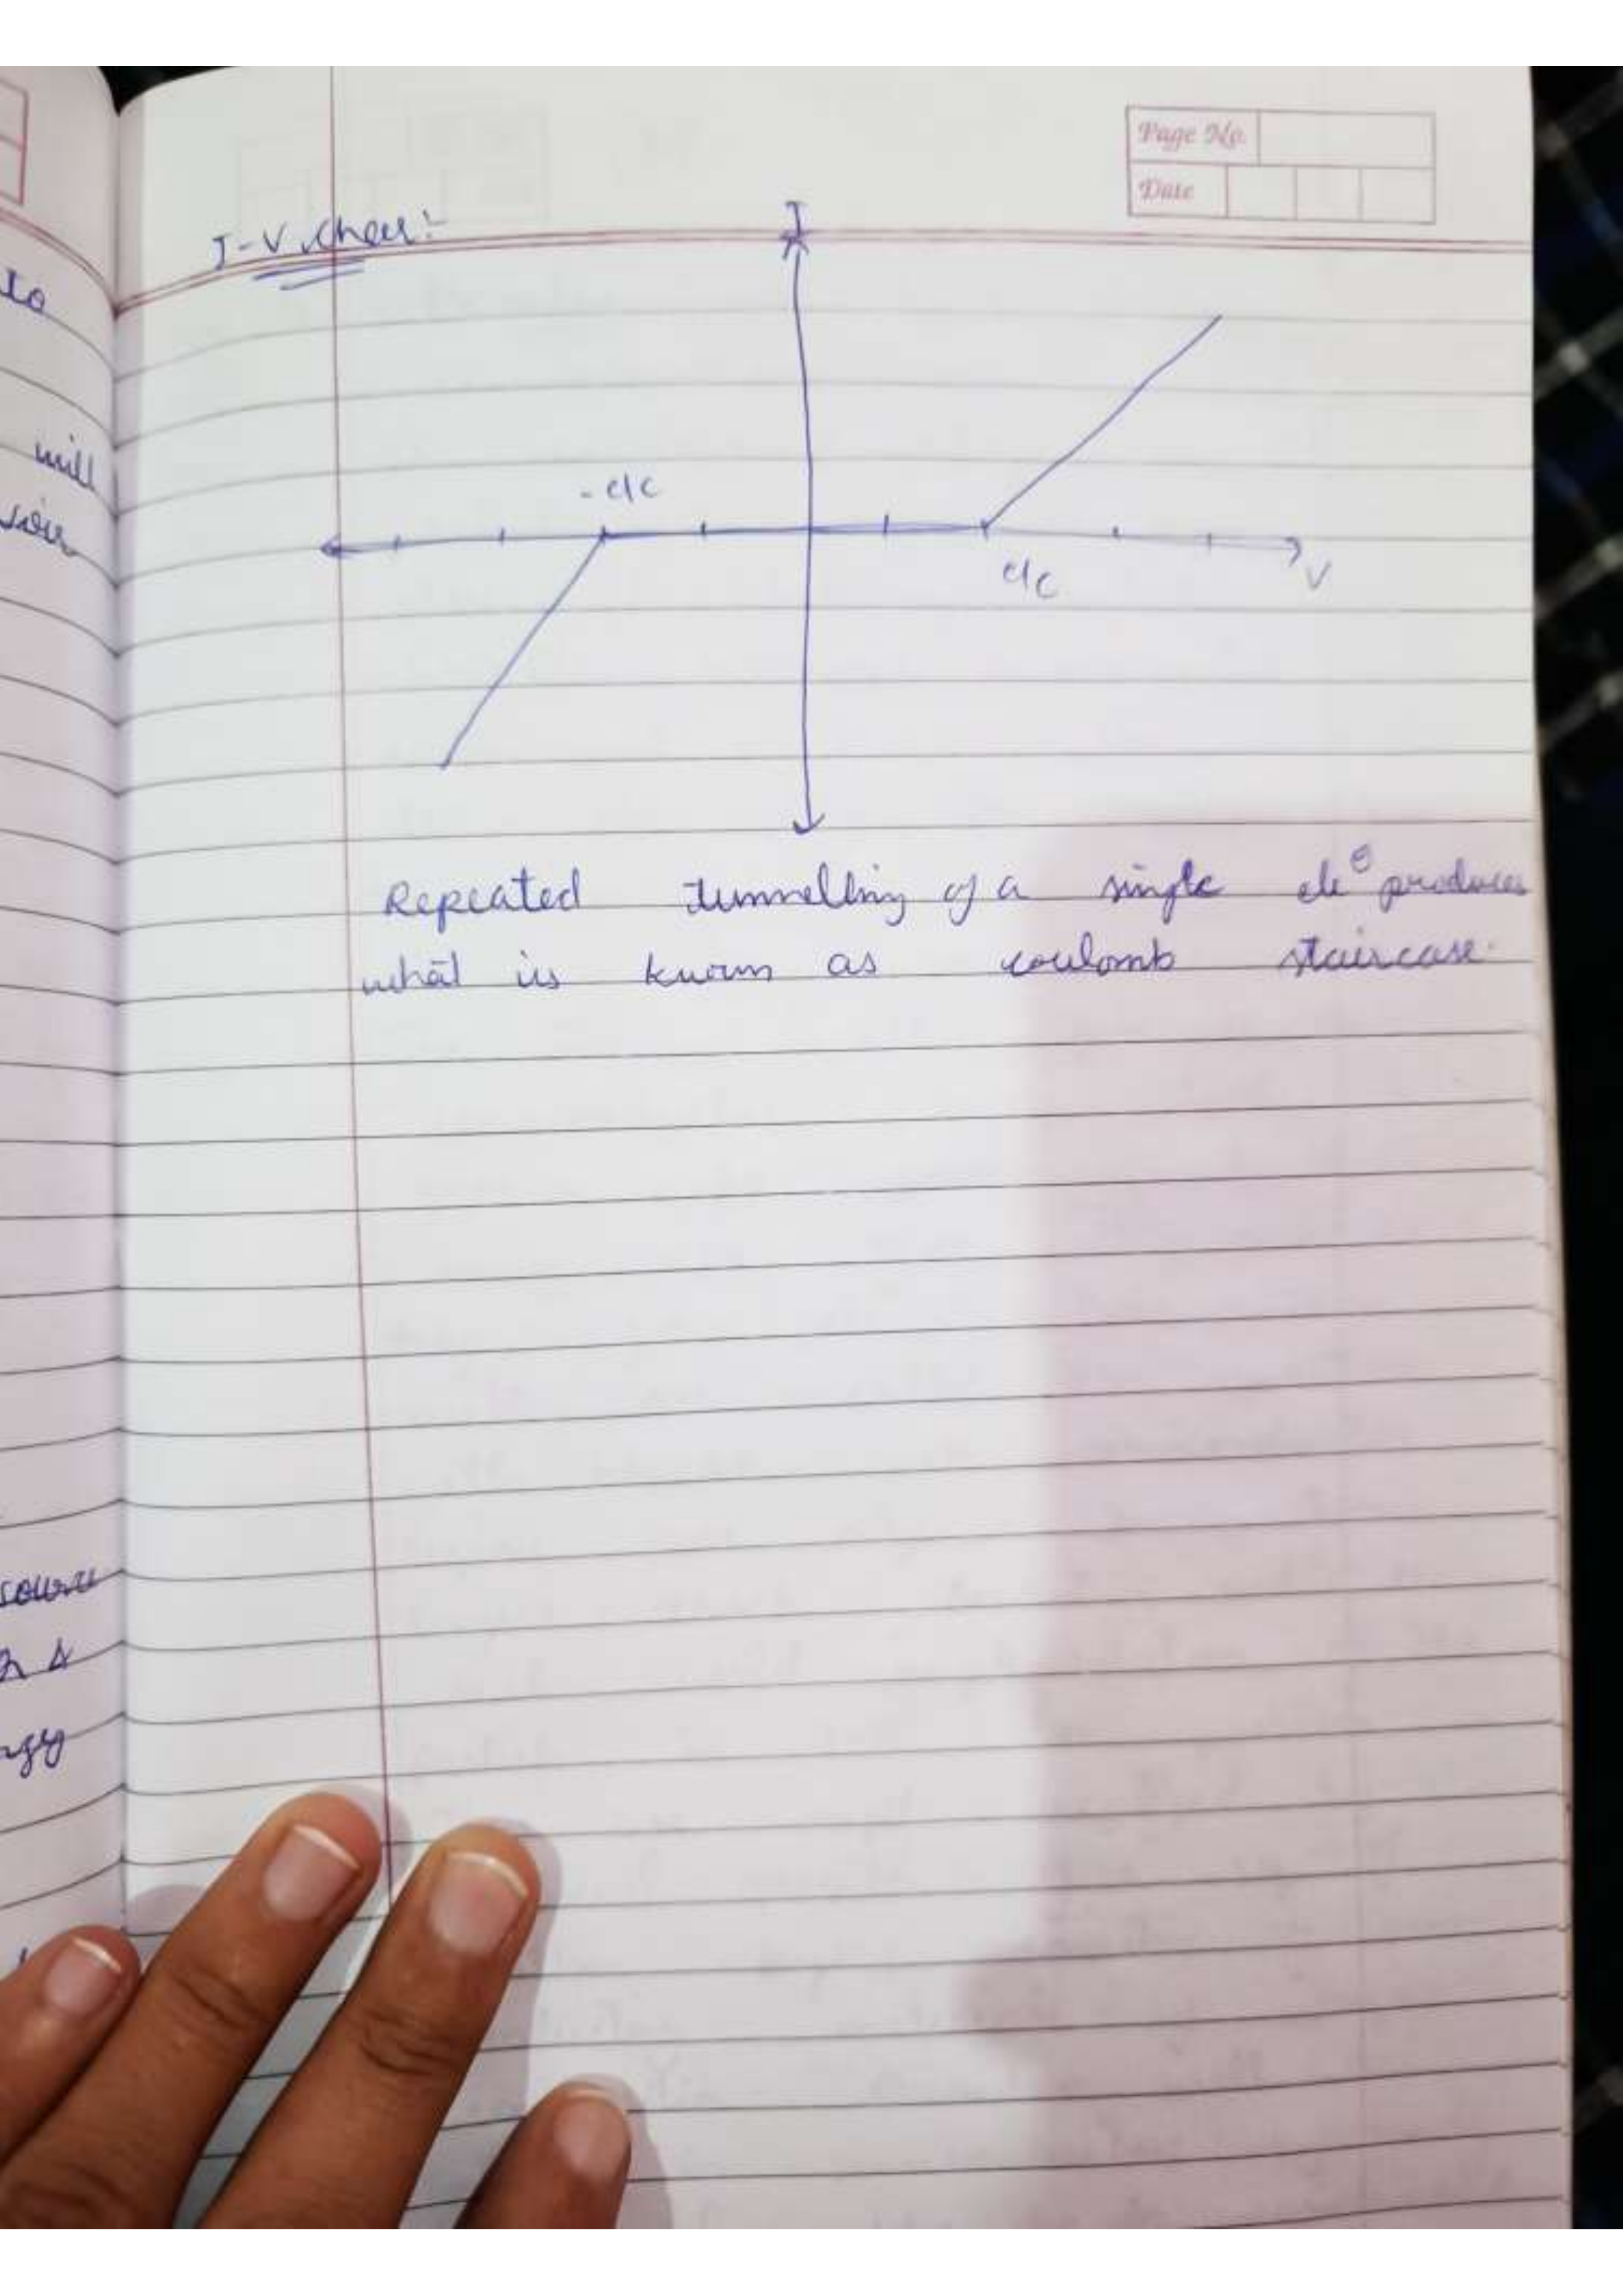 Page No.
Date
I-V char:-
I
- e/c
e/c
V
to
will
Repeated tunnelling of a single ele⊖ produces
what is known as coulomb staircase.